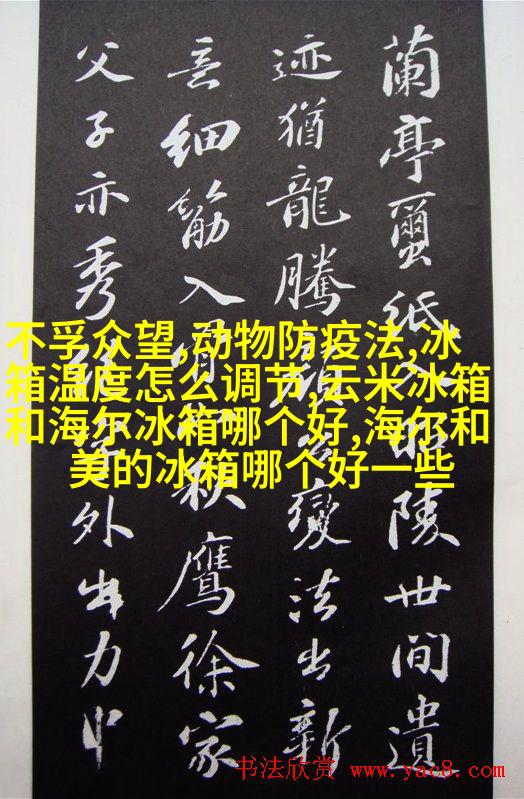 蘭亭蠒紙陵世間遺
迹猶龍騰變法出新
意細筋入秋鷹徐家
父子亦秀外出力中
不孚众望,动物防疫法,冰
箱温度怎么调节,云米冰箱
和海尔冰箱哪个好,海尔和
美的冰箱哪个好一些
书法欣赏 www.yac8.com